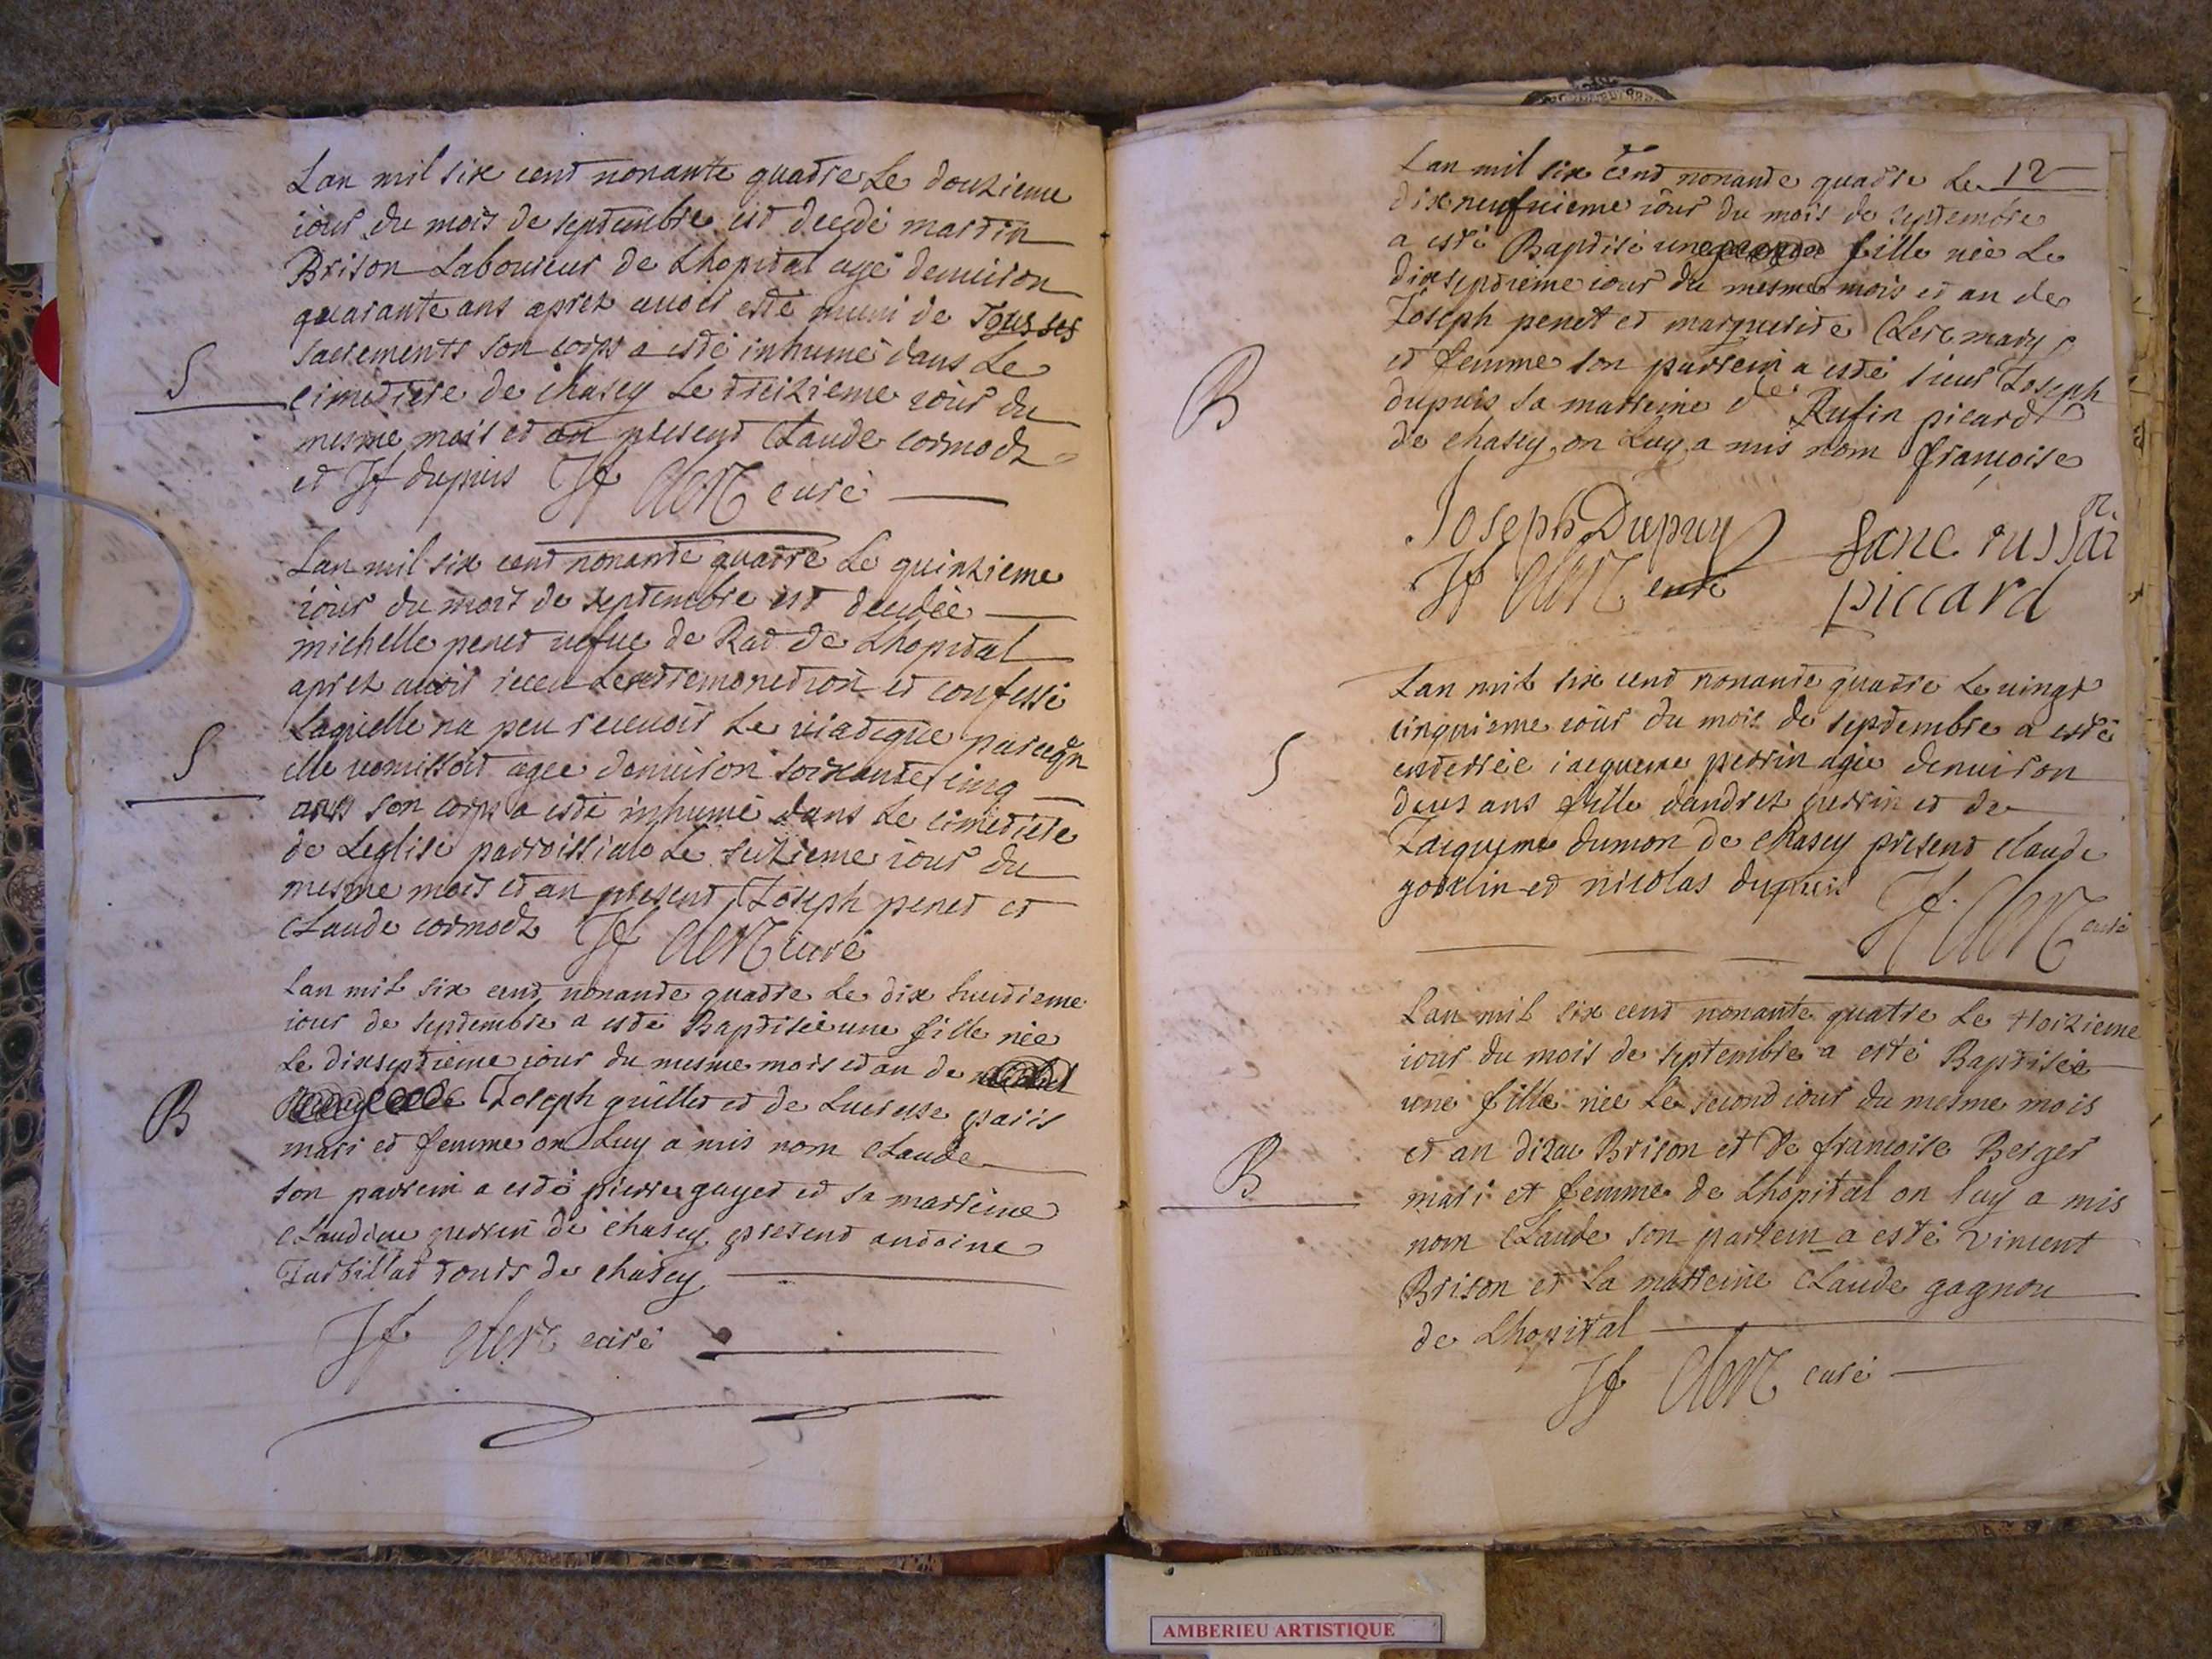 Lan mil six cent nonante quatre Le douzieme
iour du mois de septembre est decedé martin
Brison Laboureur de Lhopital agé denuiron
quarante ans aprez auoir esté muni de Tous ses
sacrements son corps a esté inhumé dans Le
S
cimetiere de chasey Le treizieme iour du
mesme mois et an present Claude cormoz
et Jf dupuis Jf Clerc curé
Lan mil six cent nonante quatre Le quinzieme
iour du mois de septembre est decedée
michelle penet uefue de Rat de Lhopital
aprez auoir receu Lextremonction et confessé
Laquelle na peu receuoir Le uiatique parcequ
S
elle uomissoit agee denuiron soixante cinq
ans son corps a esté inhumé dans Le cimetiere
de Leglise parroissiale Le seizieme iour du
mesme mois et an present Joseph penet et
Claude cormoz Jf Clerc curé
Lan mil six cent nonante quatre Le dix huitieme
iour de septembre a esté Baptisée une fille née
Le dixseptieme iour du mesme mois et an de
B
Joseph guillet et de Lucresse paris
mari et femme on Luy a mis nom Claude
son parrein a esté pierre guyet et sa marreine
Claudine perrin de chasey present antoine
Tarbillat touts de chasey
Jf Clerc curé
Lan mil six cent nonante quatre Le 12
dix neufuieme iour du mois de septembre
a esté Baptisé une fille née Le
dixseptieme iour du mesme mois et an de
Joseph penet et marguerite Clerc mary
et femme son parrein a esté sieur Joseph
B
dupuis sa marreine de Rufin picard
de chasey on Luy a mis nom françoise
Joseph Dupuy
Jf Clerc curé
piccard
Lan mil six cent nonante quatre Le uingt
cinquieme iour du mois de septembre a esté
S
enterrée iaqueme perrin agée denuiron
deux ans fille dandrez perrin et de
Jaqueme dumon de chasey present claude
et nicolas dupuis Jf Clerc curé
Lan mil six cent nonante quatre Le troizieme
iour du mois de septembre a esté Baptisée
une fille née Le second iour du mesme mois
et an dizac Brison et de francoise Berger
B
mari et femme de Lhopital on luy a mis
nom Claude son parrein a esté vincent
Brison et La marreine Claude gagnou
de Lhopital
Jf Clerc curé
AMBERIEU ARTISTIQUE